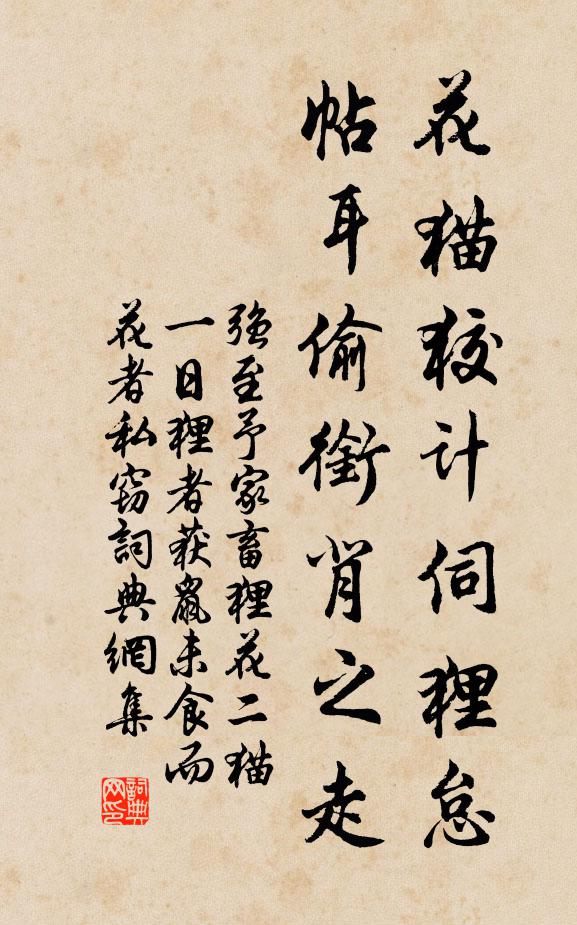 花猫狡计伺狸怠
帖耳偷銜肖之走
強至予家畜狸花二猫
一日狸者获鼠未食而
花者私窃詞典網集
詞典网印